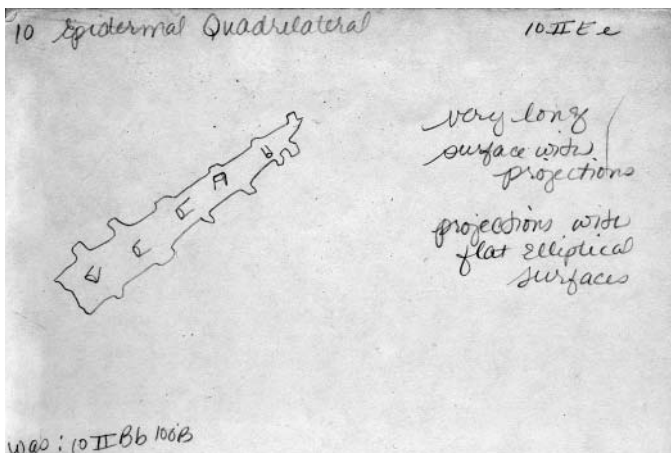 10 Epidermal Quadrilateral
10 II E e
very long
surface with
projections
projections with
flat elliptical
surfaces
was: 10 II Bb 100B